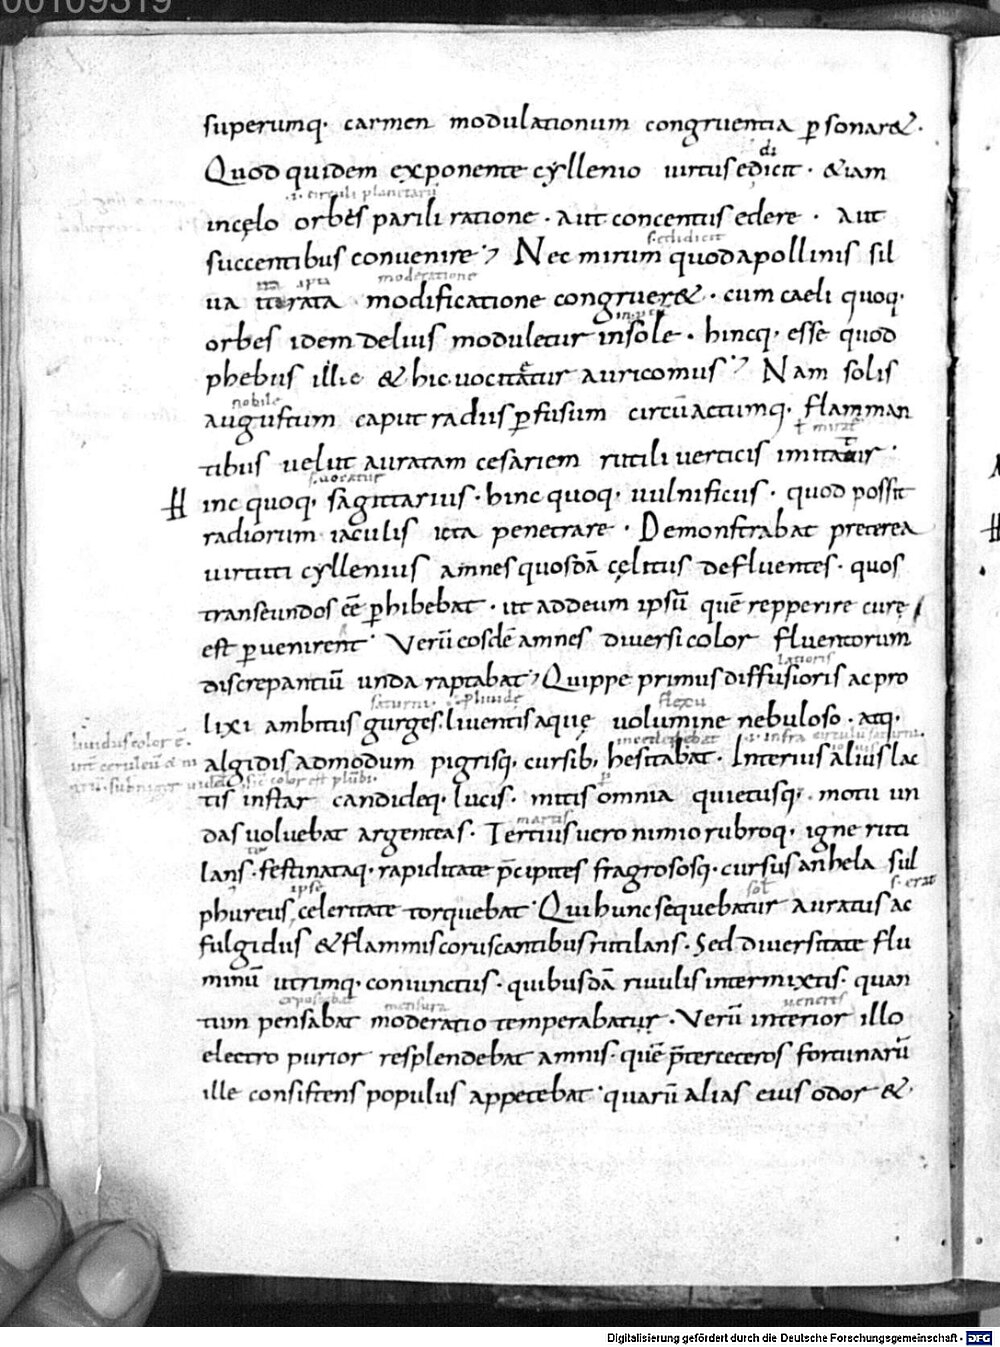 00109319
superumq. carmen modulationum congruentia ꝑsonar&.
Quod quidem exponente cyllenio uirtus edicit. &iam
di
.i. circuli planetarū
incęlo orbes parili ratione. aut concentus edere. aut
succentibus conuenire; Nec mirum quod apollinis sil
s. edidicit
moderatione
ua rata modificatione congruer&. cum caeli quoq.
orbes idem delius moduletur insole. hincq. esse quod
phebus illic & hic uocitatur auricomus; Nam solis
nobile
augustum caput radiis ꝑfusum circūactumq. flamman
tibus uelut auratam cesariem rutili uerticis imitatur.
s. uocatur
Hinc quoq. sagittarius. hinc quoq. uulnificus. quod possit
radiorum iaculis icta penetrare. Demonstrabat preterea
uirtuti cyllenius amnes quosdā cęlitus defluentes. quos
transeundos eē ꝑhibebat. ut ad deum ipsū quē repperire curę
est ꝑuenirent. Verū eosdē amnes diuersicolor fluentorum
discrepantiū unda raptabat; Quippe primus diffusioris ac pro
latioris
saturni
flexu
lixi ambitus gurges. liuentis aquę uolumine nebuloso. atq.
liuidus color ē.
algidis admodum pigrisq. cursib; hesitabat. Interius alius lac
tis instar candideq. lucis. mitis omnia quietusq. motu un
das uoluebat argenteas. Tertius uero nimio rubroq. igne ruti
martis
lans. festinataq. rapiditate p̄cipites fragrososq. cursus anhela sul
ipse
s. erat
phureus celeritate torquebat. Qui hunc sequebatur auratus ac
sol
fulgidus & flammis coruscantibus rutilans. Sed diuersitate flu
minū utrimq. coniunctus. quibusdā riuulis intermixtis. quan
mensura
ueneris
tum pensabat moderatio temperabatur. Verū interior illo
electro purior resplendebat amnis. quē p̄terceteros fortunarū
ille consistens populus appetebat. quarū alias eius odor &
Digitalisierung gefördert durch die Deutsche Forschungsgemeinschaft - DFG